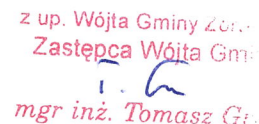 z up. Wójta Gminy
Zastępca Wójta
mgr inż. Tomasz